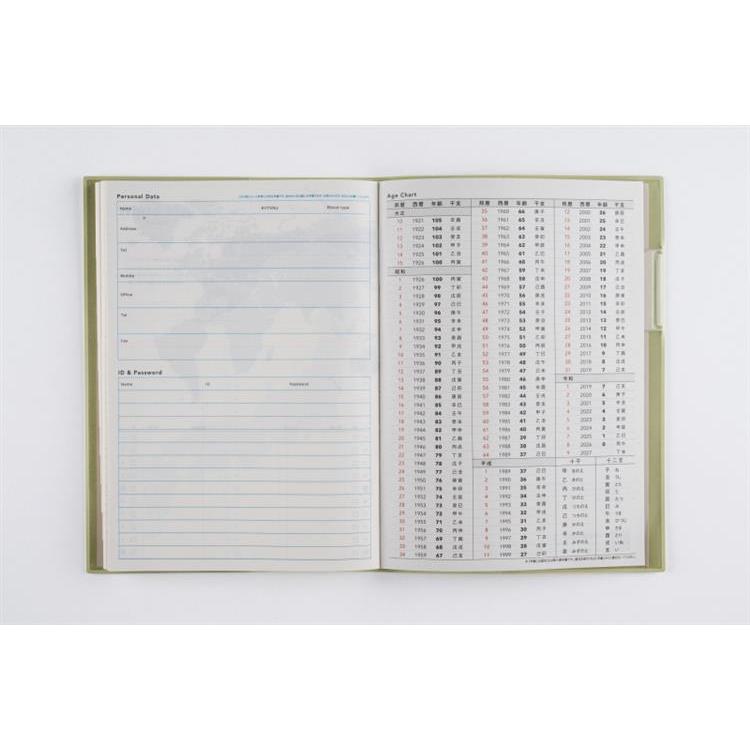 Personal Data
Name
Blood type
Address
Tel
Mobile
Office
Tel
Fax
ID & Password
Name ID Password
Age Chart
邦暦 西暦 年齢 干支
大正
10 1921 105 辛酉
11 1922 104 壬戌
12 1923 103 癸亥
13 1924 102 甲子
14 1925 101 乙丑
15 1926 100 丙寅
昭和
1 1926 100 丙寅
2 1927 99 丁卯
3 1928 98 戊辰
4 1929 97 己巳
5 1930 96 庚午
6 1931 95 辛未
7 1932 94 壬申
8 1933 93 癸酉
9 1934 92 甲戌
10 1935 91 乙亥
11 1936 90 丙子
12 1937 89 丁丑
13 1938 88 戊寅
14 1939 87 己卯
15 1940 86 庚辰
16 1941 85 辛巳
17 1942 84 壬午
18 1943 83 癸未
19 1944 82 甲申
20 1945 81 乙酉
21 1946 80 丙戌
22 1947 79 丁亥
23 1948 78 戊子
24 1949 77 己丑
25 1950 76 庚寅
26 1951 75 辛卯
27 1952 74 壬辰
28 1953 73 癸巳
29 1954 72 甲午
30 1955 71 乙未
31 1956 70 丙申
32 1957 69 丁酉
33 1958 68 戊戌
34 1959 67 己亥
邦暦 西暦 年齢 干支
35 1960 66 庚子
36 1961 65 辛丑
37 1962 64 壬寅
38 1963 63 癸卯
39 1964 62 甲辰
40 1965 61 乙巳
41 1966 60 丙午
42 1967 59 丁未
43 1968 58 戊申
44 1969 57 己酉
45 1970 56 庚戌
46 1971 55 辛亥
47 1972 54 壬子
48 1973 53 癸丑
49 1974 52 甲寅
50 1975 51 乙卯
51 1976 50 丙辰
52 1977 49 丁巳
53 1978 48 戊午
54 1979 47 己未
55 1980 46 庚申
56 1981 45 辛酉
57 1982 44 壬戌
58 1983 43 癸亥
59 1984 42 甲子
60 1985 41 乙丑
61 1986 40 丙寅
62 1987 39 丁卯
63 1988 38 戊辰
64 1989 37 己巳
平成
1 1989 37 己巳
2 1990 36 庚午
3 1991 35 辛未
4 1992 34 壬申
5 1993 33 癸酉
6 1994 32 甲戌
7 1995 31 乙亥
8 1996 30 丙子
9 1997 29 丁丑
10 1998 28 戊寅
11 1999 27 己卯
邦暦 西暦 年齢 干支
12 2000 26 庚辰
13 2001 25 辛巳
14 2002 24 壬午
15 2003 23 癸未
16 2004 22 甲申
17 2005 21 乙酉
18 2006 20 丙戌
19 2007 19 丁亥
20 2008 18 戊子
21 2009 17 己丑
22 2010 16 庚寅
23 2011 15 辛卯
24 2012 14 壬辰
25 2013 13 癸巳
26 2014 12 甲午
27 2015 11 乙未
28 2016 10 丙申
29 2017 9 丁酉
30 2018 8 戊戌
31 2019 7 己亥
令和
1 2019 7 己亥
2 2020 6 庚子
3 2021 5 辛丑
4 2022 4 壬寅
5 2023 3 癸卯
6 2024 2 甲辰
7 2025 1 乙巳
8 2026 0 丙午
9 2027 丁未
十干 十二支
甲 きのえ 子 ね
乙 きのと 丑 うし
丙 ひのえ 寅 とら
丁 ひのと 卯 う
戊 つちのえ 辰 たつ
己 つちのと 巳 み
庚 かのえ 午 うま
辛 かのと 未 ひつじ
壬 みずのえ 申 さる
癸 みずのと 酉 とり
戌 いぬ
亥 い